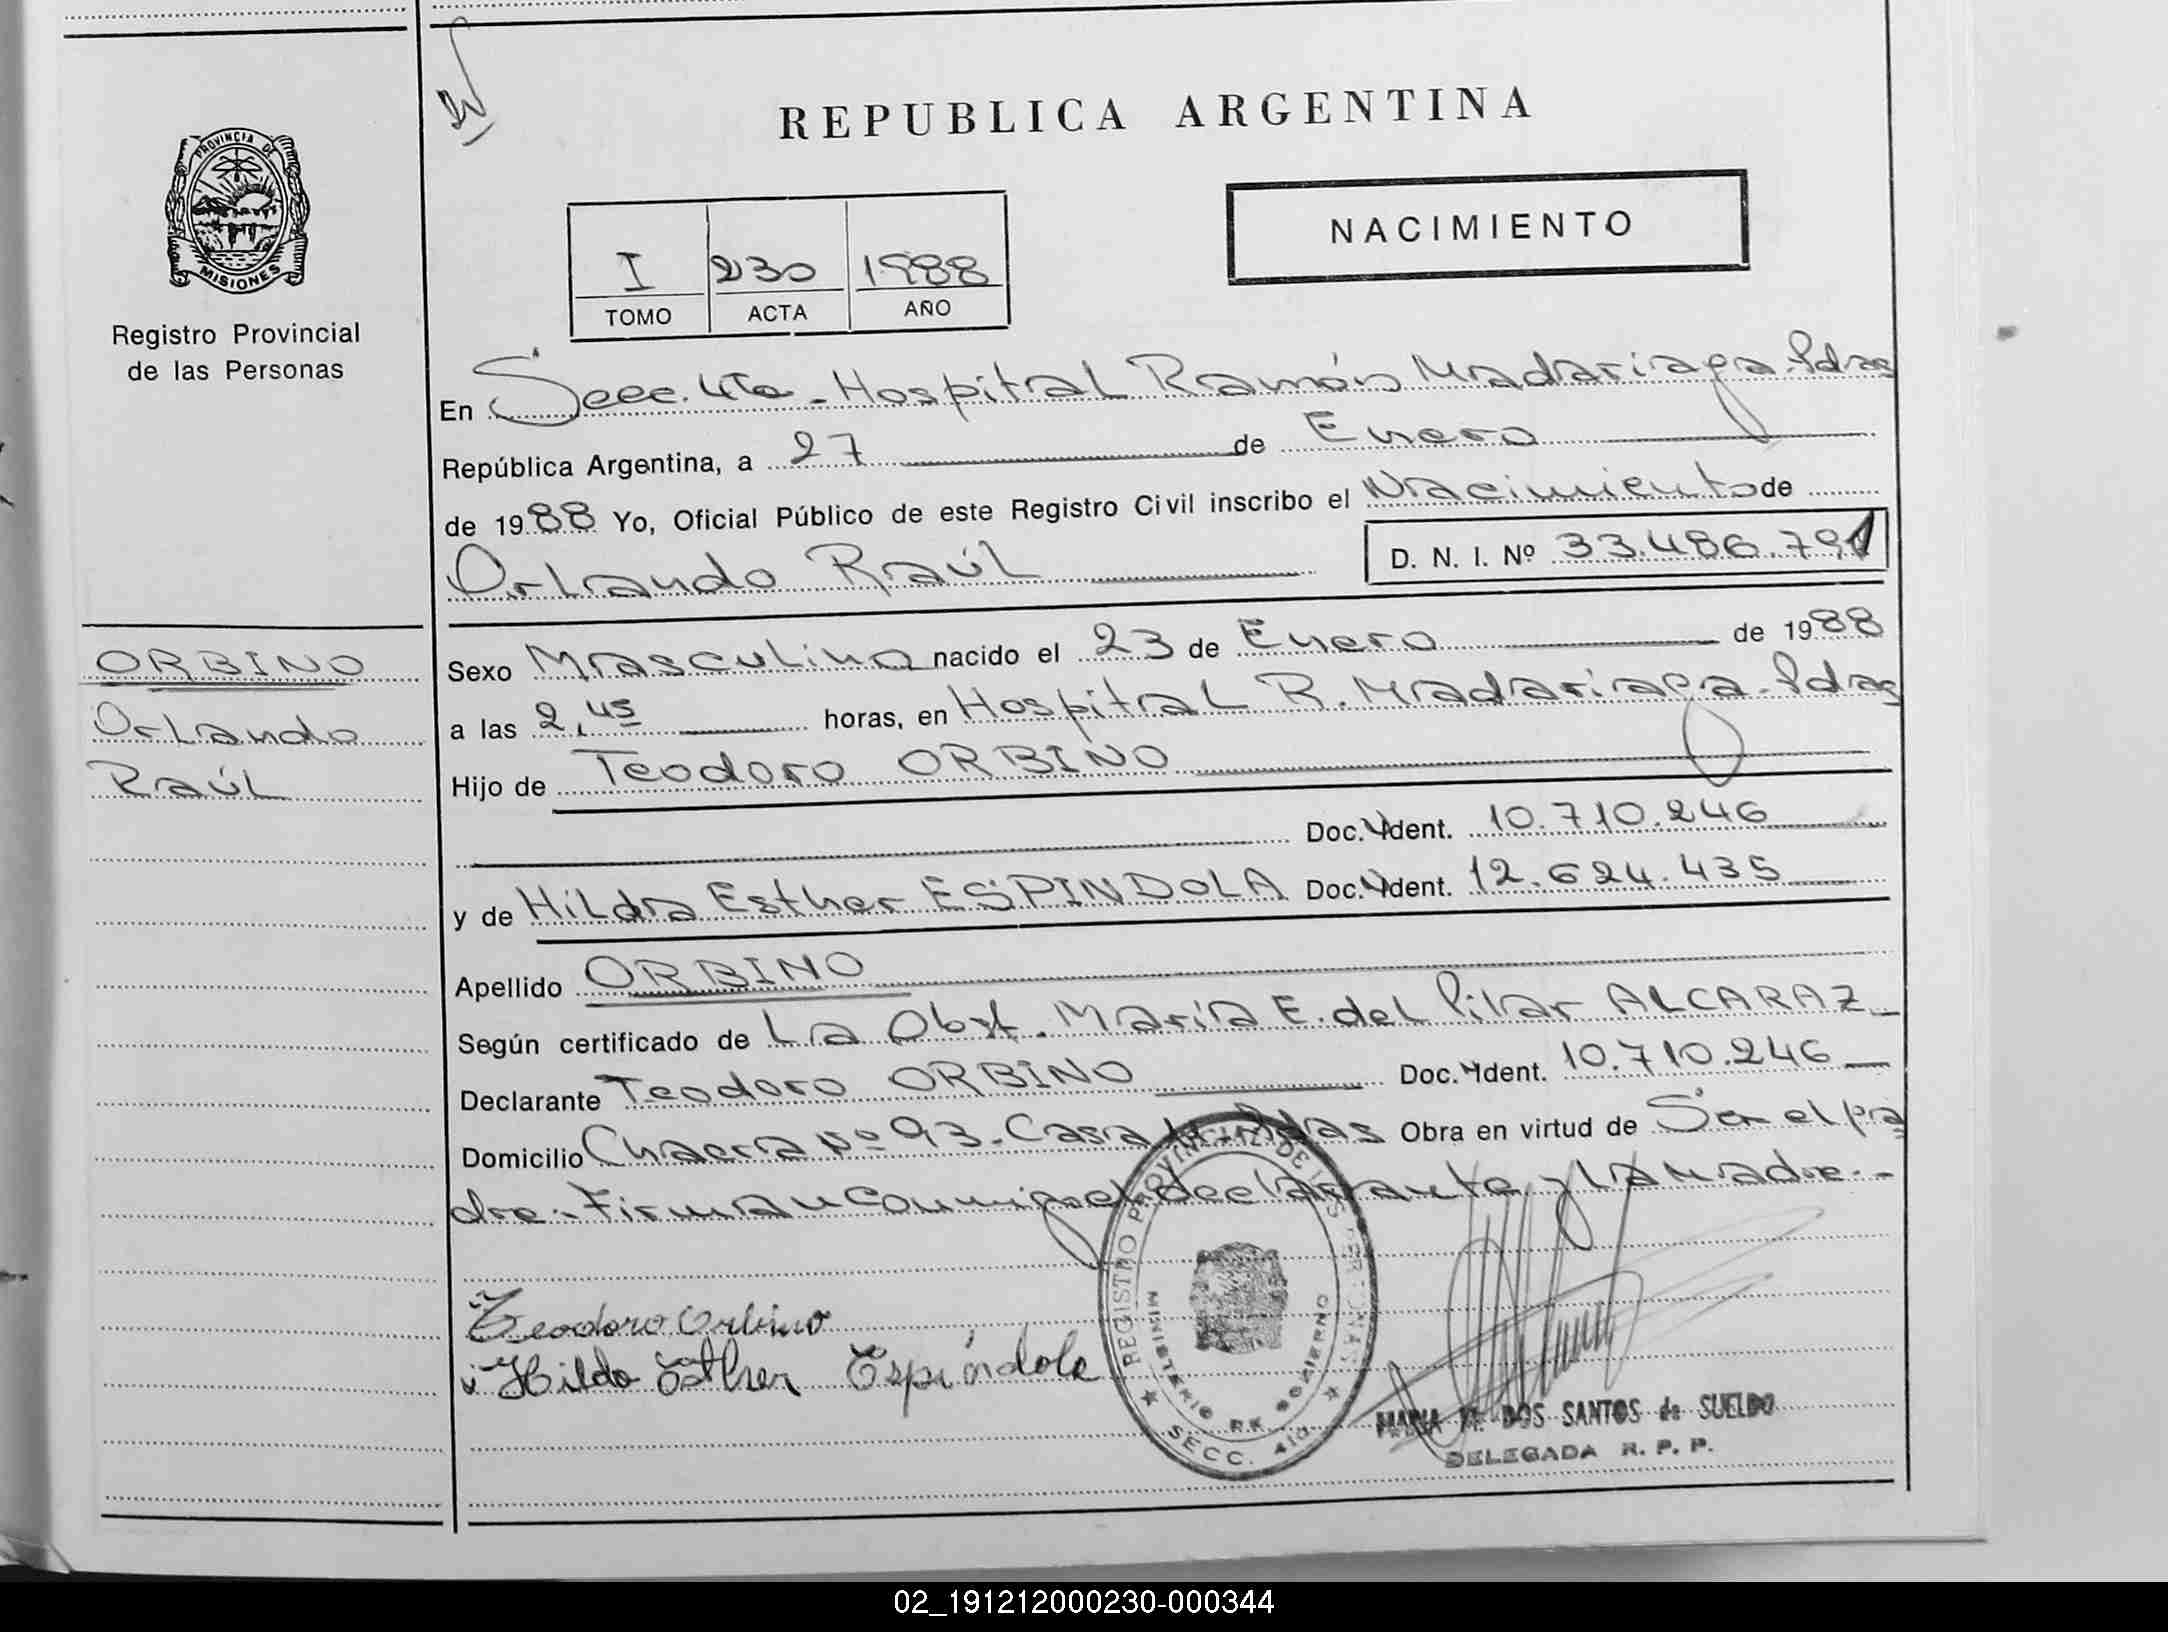 PROVINCIA DE
MISIONES
Registro Provincial
de las Personas
ORBINO
Orlando
Raúl
REPUBLICA ARGENTINA
NACIMIENTO
I 230 1988
TOMO ACTA AÑO
En Secc. 4ta - Hospital Ramón Madariaga - Pdas
República Argentina, a 27 de Enero
de 1988 Yo, Oficial Público de este Registro Civil inscribo el Nacimiento de
Orlando Raúl D. N. I. Nº 33.486.791
Sexo Masculino nacido el 23 de Enero de 1988
a las 2,45 horas, en Hospital R. Madariaga - Pdas
Hijo de Teodoro ORBINO
Doc. Ident. 10.710.246
y de Hilda Esther ESPINDOLA Doc. Ident. 12.624.435
Apellido ORBINO
Según certificado de La Obst. María E. del Pilar ALCARAZ
Declarante Teodoro ORBINO Doc. Ident. 10.710.246
Domicilio Chacra Nº 93 - Casa Pdas Obra en virtud de Ser el pa
dre.- Firman conmigo el declarante y la Madre.-
Teodoro Orbino
Hilda Esther Espíndola
REGISTRO PROVINCIAL DE LAS PERSONAS
MINISTERIO DE GOBIERNO
SECC. 4ta
MARIA M. DOS SANTOS de SUELDO
DELEGADA R. P. P.
02_191212000230-000344